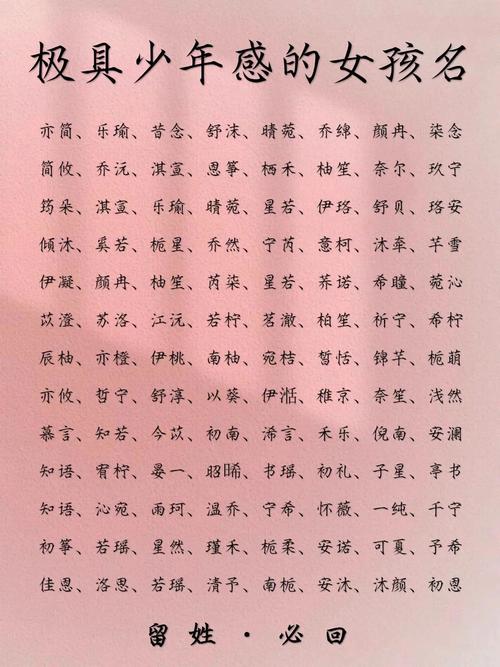 极具少年感的女孩名
亦简、乐瑜、昔念、舒沫、晴菀、乔绵、颜冉、柒念
简攸、乔沅、淇宣、恩筝、栖禾、柚笙、奈尔、玖宁
筠朵、淇宣、乐瑜、晴菀、星若、伊珞、舒贝、珞安
倾沐、奚若、栀星、乔然、宁芮、意柯、沐牵、芊雪
伊凝、颜冉、柚笙、芮柒、星若、荞诺、希瞳、菀沁
苡澄、苏洛、江沅、若柠、茗澈、柏笙、祈宁、希柠
辰柚、亦橙、伊桃、南柚、宛桔、皙恬、锦芊、栀萌
亦攸、哲宁、舒淳、以葵、伊湉、稚京、奈笙、浅然
慕言、知若、今苡、初南、浠言、禾乐、倪南、安澜
知语、宥柠、晏一、昭晞、书瑶、初礼、子星、亭书
知语、沁宛、雨珂、温乔、宁希、怀薇、一纯、千宁
初筝、若瑶、星然、瑾禾、栀柔、安诺、可夏、予希
佳恩、洛恩、若瑶、清予、南栀、安沐、沐颜、初恩
留姓·必回